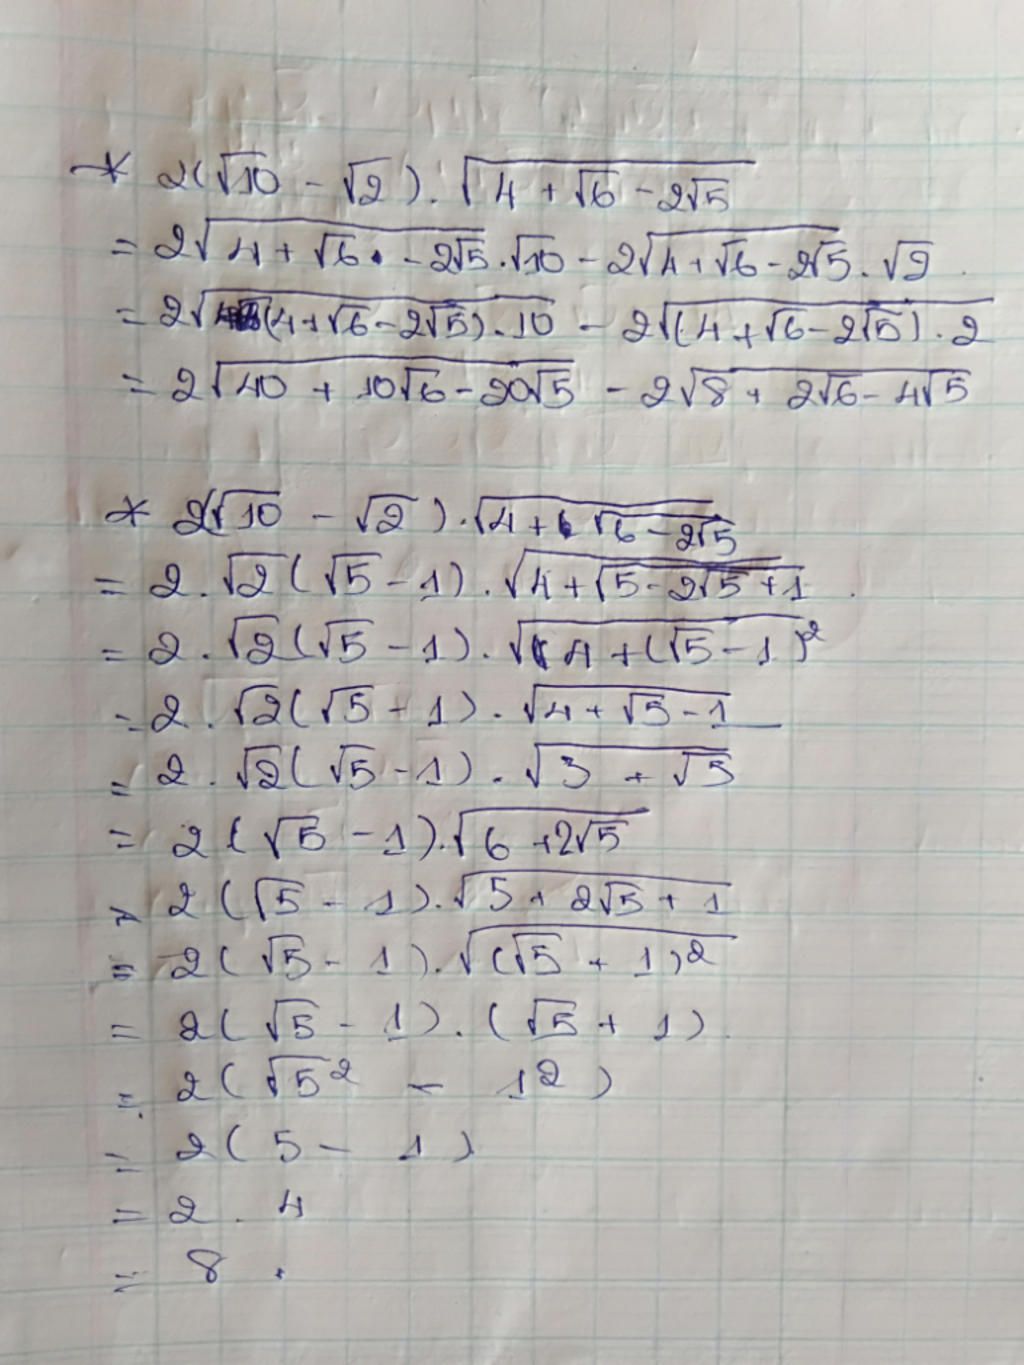 * 2(√10 - √2).√(4 + √6 - 2√5
= 2√(4 + √6 . - 2√5.√10 - 2√(4 + √6 - 2√5 . √2
= 2√((4 + √6 - 2√5).10 - 2√((4 + √6 - 2√5).2
= 2√(40 + 10√6 - 20√5 - 2√(8 + 2√6 - 4√5
* 2(√10 - √2).√(4 + √6 - 2√5
= 2.√2(√5 - 1).√(4 + √5 - 2√5 + 1
= 2.√2(√5 - 1).√(4 + (√5 - 1)²
= 2.√2(√5 - 1).√(4 + √5 - 1
= 2.√2(√5 - 1).√(3 + √5
= 2(√5 - 1).√(6 + 2√5
= 2(√5 - 1).√(5 + 2√5 + 1
= 2(√5 - 1).√((√5 + 1)²
= 2(√5 - 1).(√5 + 1)
= 2(√5² - 1²)
= 2(5 - 1)
= 2 . 4
= 8 .